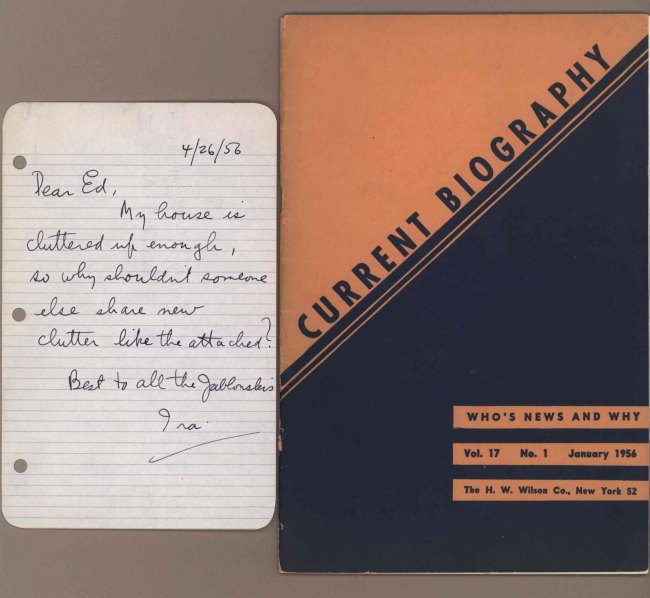 4/26/56
Dear Ed,
My house is
cluttered up enough,
so why shouldn't someone
else share new
clutter like the attached?
Best to all the Jablonskis
Ira.
CURRENT BIOGRAPHY
WHO'S NEWS AND WHY
Vol. 17 No. 1 January 1956
The H. W. Wilson Co., New York 52